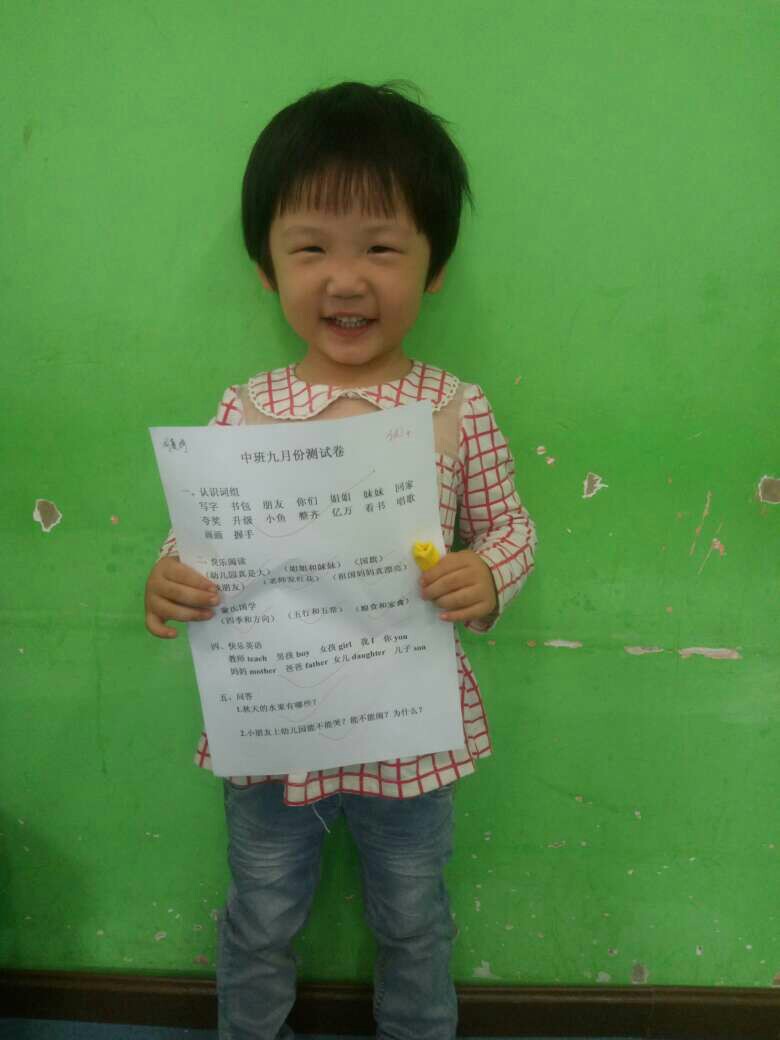 中班九月份测试卷
一、认识词组
写字 书包 朋友 你们 姐姐 妹妹 回家
夸奖 升级 小鱼 整齐 亿万 看书 唱歌
画画 握手
二、快乐阅读
（幼儿园真是大）（姐姐和妹妹）（国旗）
朋友）（老师发红花）（祖国妈妈真漂亮）
国学
（四季和方向）（五行和五常）（粮食和家禽）
四、快乐英语
教师teach 男孩boy 女孩girl 我I 你you
妈妈mother 爸爸father 女儿daughter 儿子son
五、问答
1.秋天的水果有哪些？
2.小朋友上幼儿园能不能哭？能不能闹？为什么？